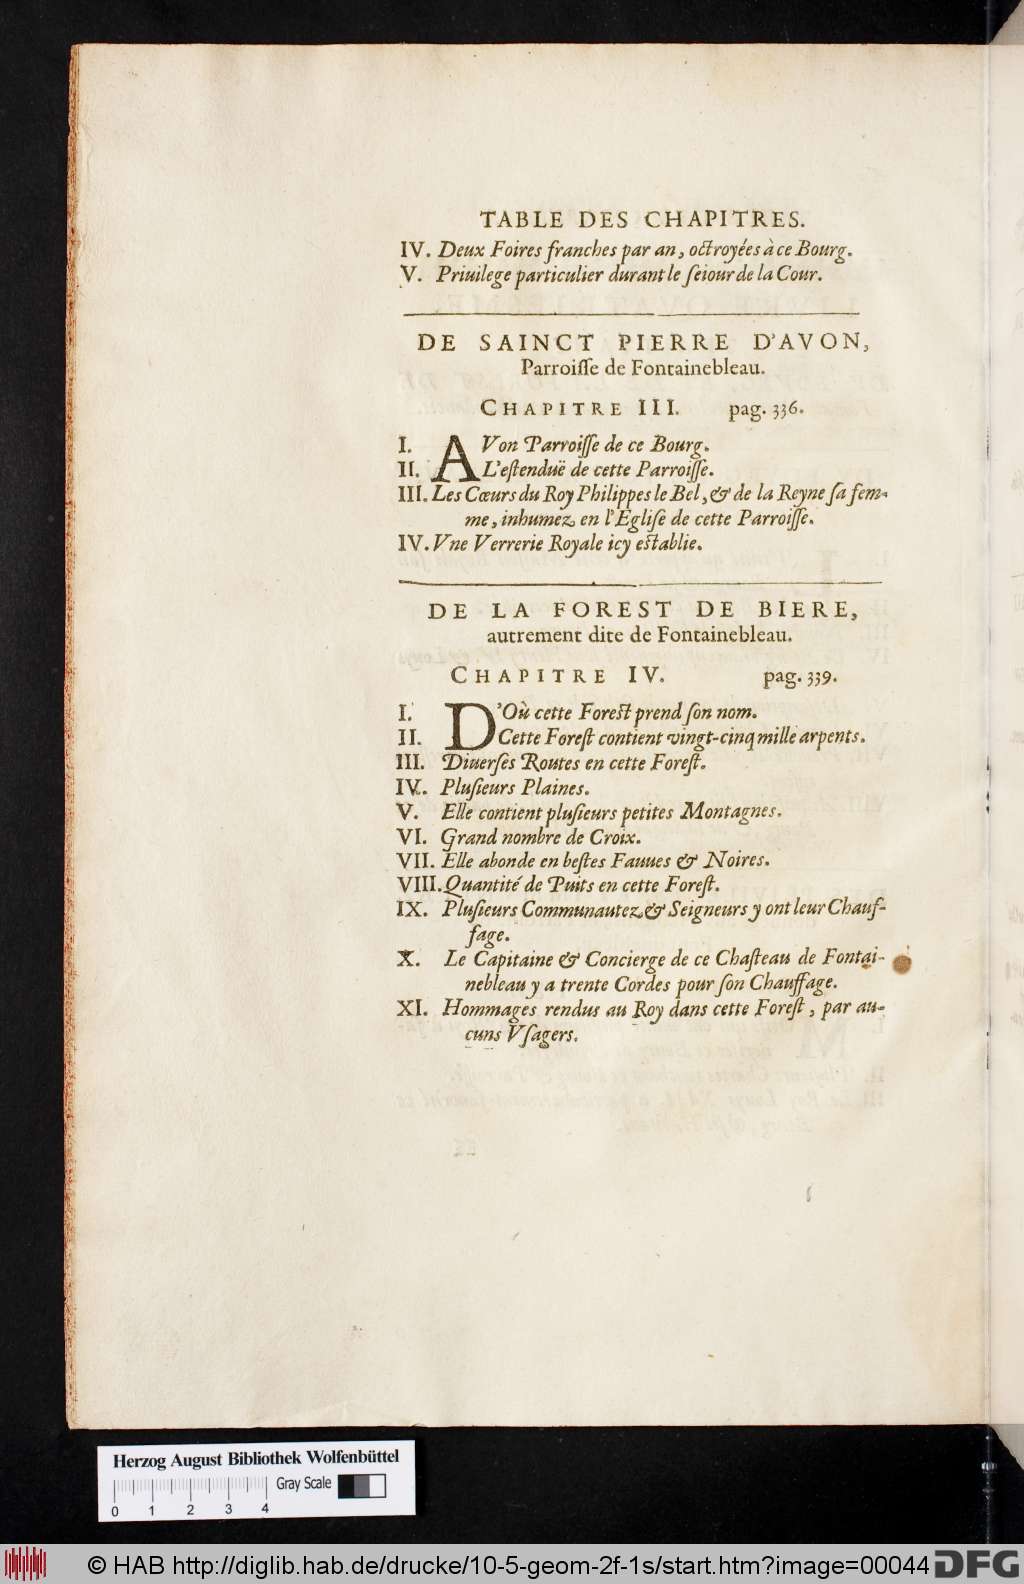 TABLE DES CHAPITRES.
IV. Deux Foires franches par an, octroyées à ce Bourg.
V. Priuilege particulier durant le ſeiour de la Cour.
DE SAINCT PIERRE D'AVON,
Parroiſſe de Fontainebleau.
CHAPITRE III. pag. 336.
I. AVon Parroiſſe de ce Bourg.
II. L'eſtenduë de cette Parroiſſe.
III. Les Cœurs du Roy Philippes le Bel, & de la Reyne ſa fem-
me, inhumez en l'Egliſe de cette Parroiſſe.
IV. Vne Verrerie Royale icy eſtablie.
DE LA FOREST DE BIERE,
autrement dite de Fontainebleau.
CHAPITRE IV. pag. 339.
I. D'Où cette Foreſt prend ſon nom.
II. Cette Foreſt contient vingt-cinq mille arpents.
III. Diuerſes Routes en cette Foreſt.
IV. Pluſieurs Plaines.
V. Elle contient pluſieurs petites Montagnes.
VI. Grand nombre de Croix.
VII. Elle abonde en beſtes Fauues & Noires.
VIII. Quantité de Puits en cette Foreſt.
IX. Pluſieurs Communautez & Seigneurs y ont leur Chauf-
fage.
X. Le Capitaine & Concierge de ce Chaſteau de Fontai-
nebleau y a trente Cordes pour ſon Chauffage.
XI. Hommages rendus au Roy dans cette Foreſt, par au-
cuns Vſagers.
Herzog August Bibliothek Wolfenbüttel
Gray Scale
0 1 2 3 4
© HAB http://diglib.hab.de/drucke/10-5-geom-2f-1s/start.htm?image=00044
DFG